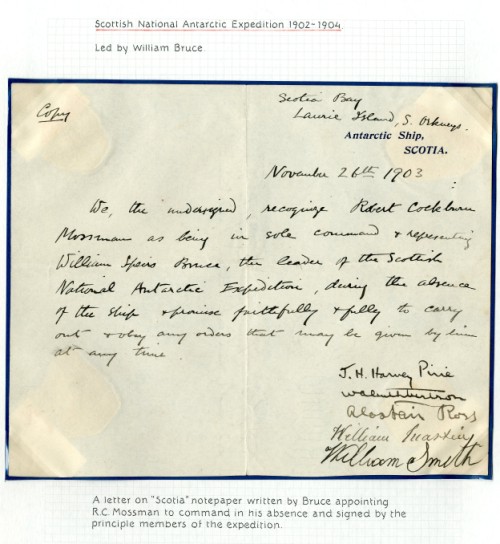 Scottish National Antarctic Expedition 1902-1904.
Led by William Bruce
Copy
Scotia Bay
Laurie Island, S. Orkneys.
Antarctic Ship,
SCOTIA.
November 26th 1903
We, the undersigned, recognize Robert Cockburn
Mossman as being in sole command & representing
William Speirs Bruce, the leader of the Scottish
National Antarctic Expedition, during the absence
of the ship & promise faithfully & fully to carry
out & obey any orders that may be given by him
at any time.
J. H. Harvey Pirie
Alastair Ross
William
William Smith
A letter on "Scotia" notepaper written by Bruce appointing
R.C. Mossman to command in his absence and signed by the
principle members of the expedition.